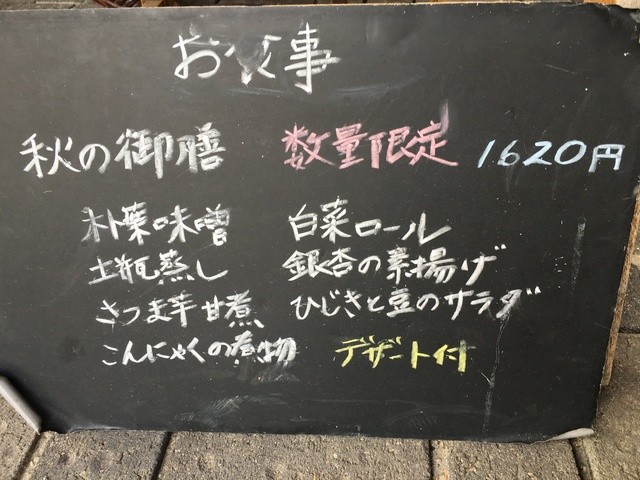 お食事
秋の御膳 数量限定 1620円
朴葉味噌 白菜ロール
土瓶蒸し 銀杏の素揚げ
さつま芋甘煮 ひじきと豆のサラダ
こんにゃくの煮物 デザート付